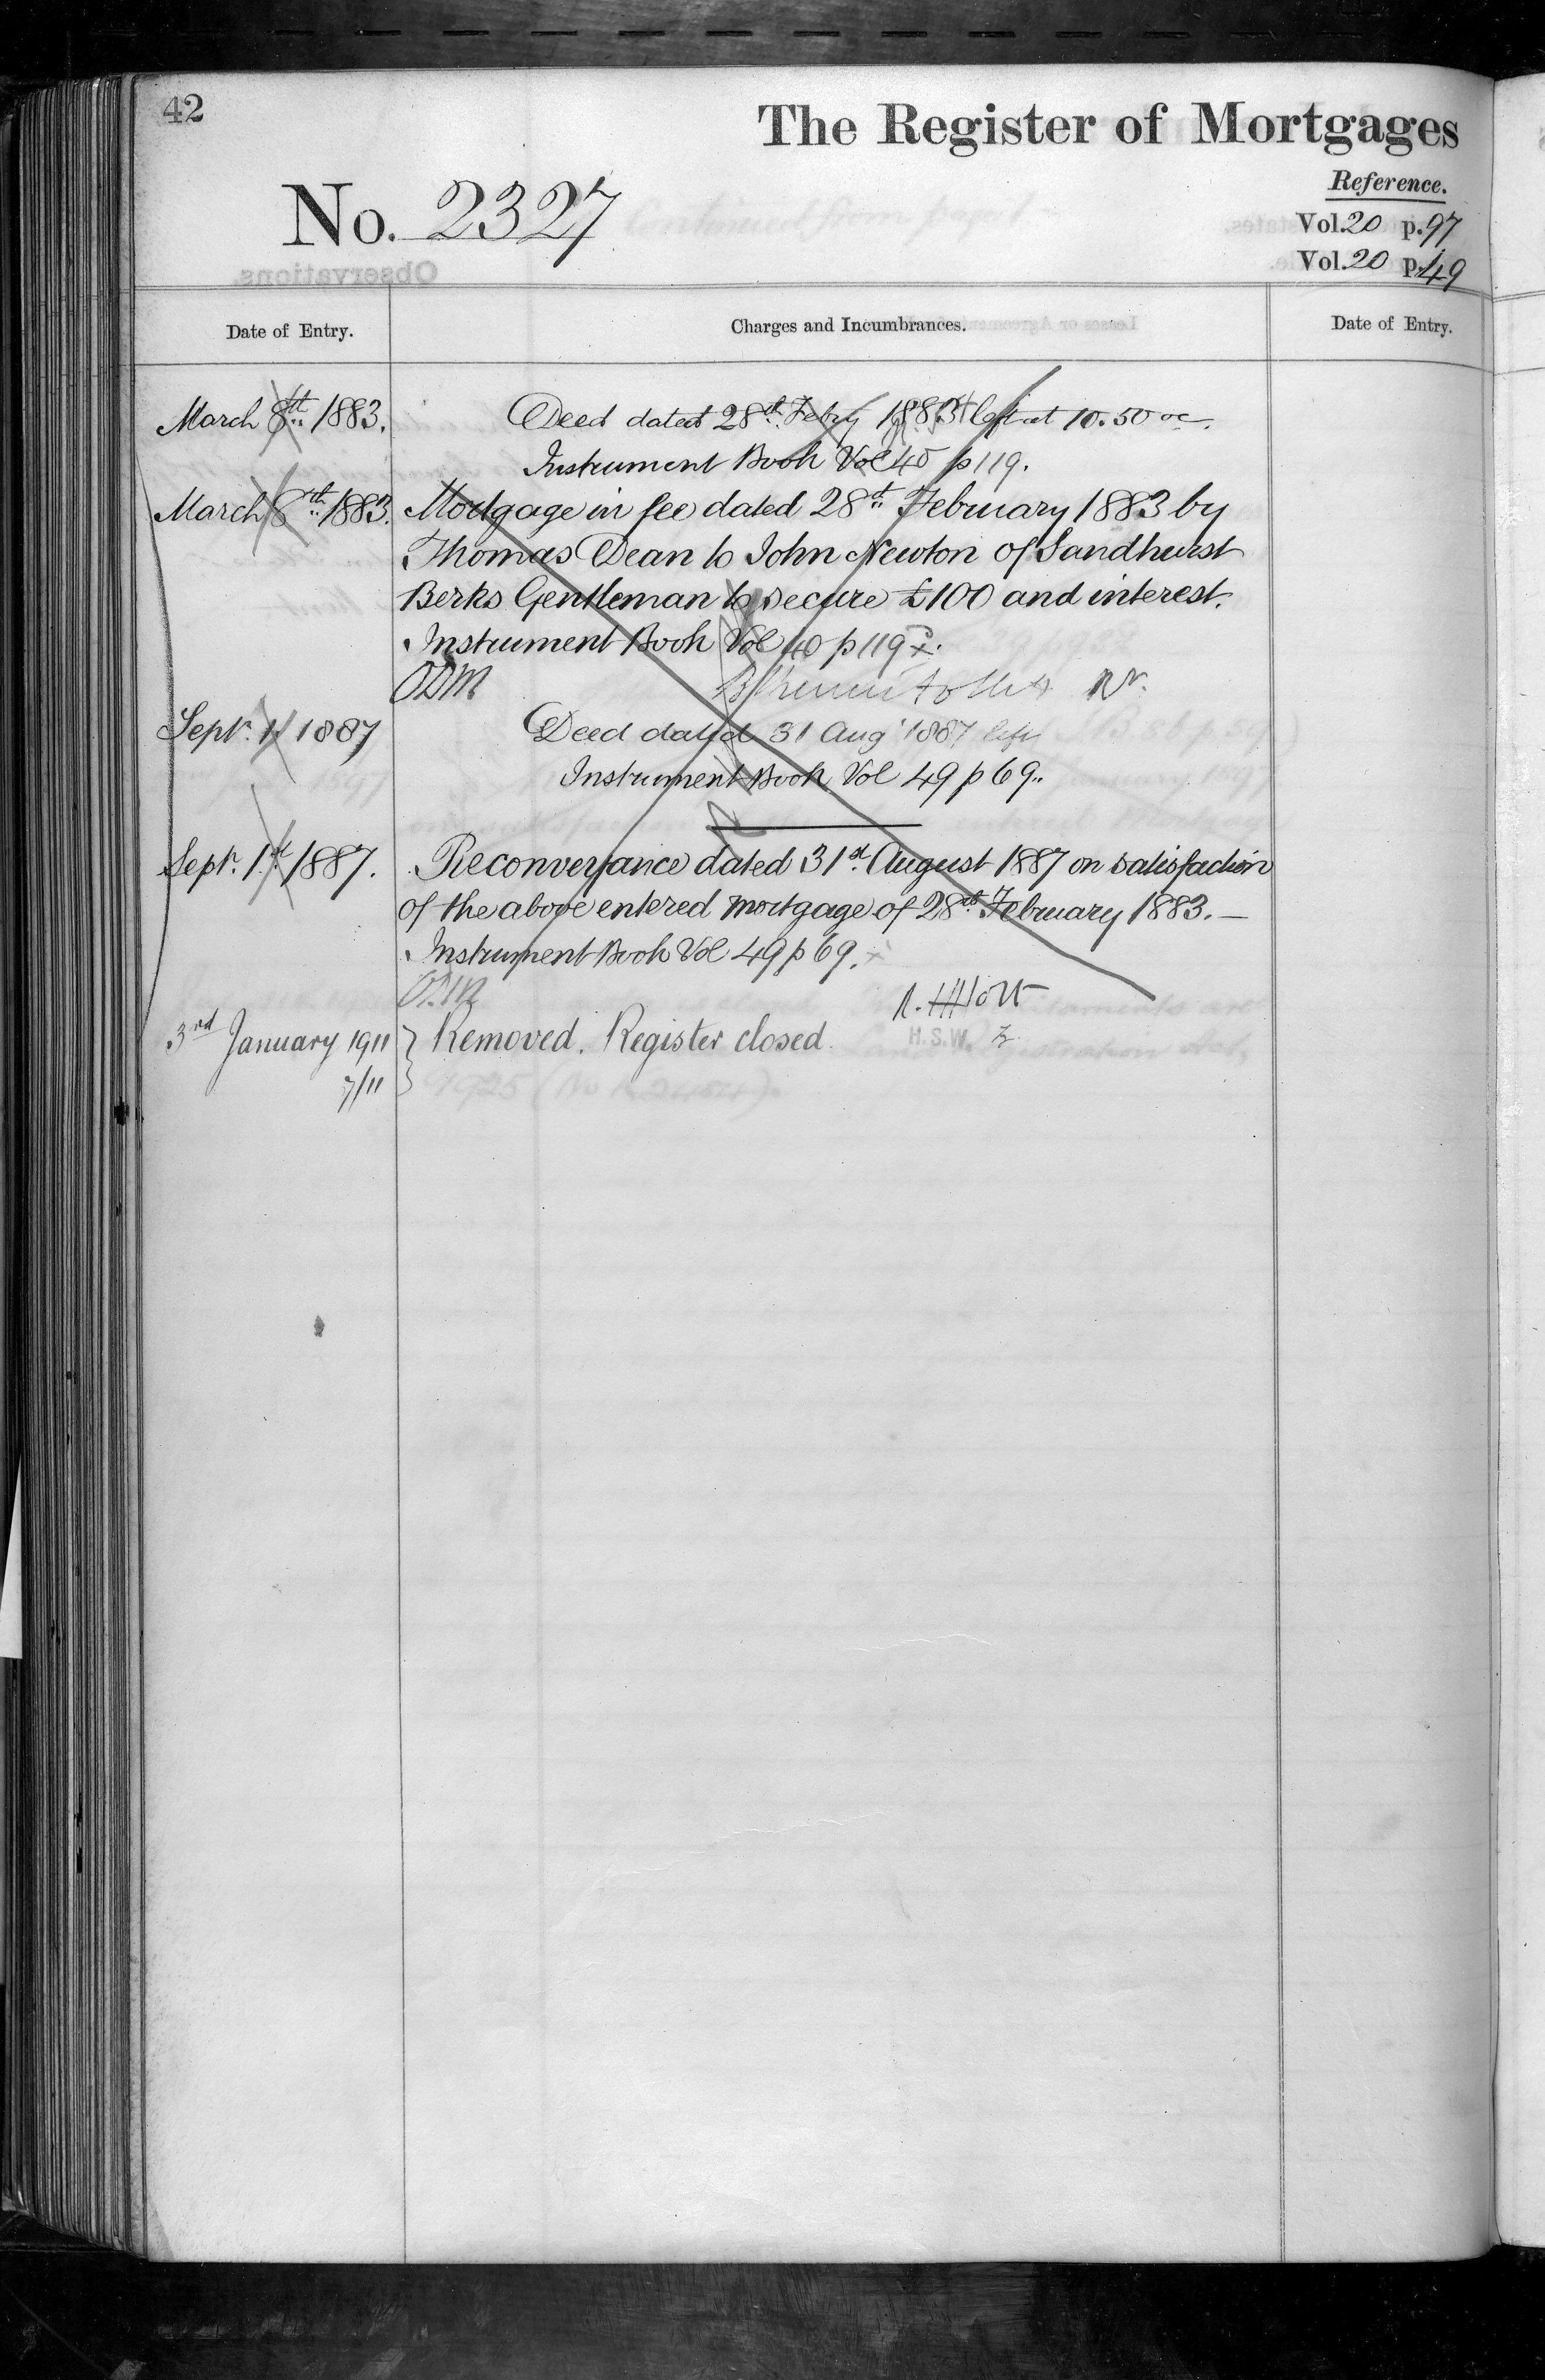 42
The Register of Mortgages
No. 2327
Reference.
Vol. 20 p. 97
Vol. 20 p. 49
Observations.
Date of Entry.
Charges and Incumbrances.
Date of Entry.
March 8th 1883.
Deed dated 28th Febry 1883 left at 10.50 oc.
Instrument Book Vol 40 p 119.
March 8th 1883.
Mortgage in fee dated 28th February 1883 by
Thomas Dean to John Newton of Sandhurst
Berks Gentleman to secure £100 and interest.
Instrument Book Vol 40 p 119
ODM
Sept. 1 1887
Deed dated 31 Aug 1887 left
Instrument Book Vol 49 p 69.
Sept. 1st 1887.
Reconveyance dated 31st August 1887 on satisfaction
of the above entered mortgage of 28th February 1883.—
Instrument Book Vol 49 p 69.
3rd January 1911
7/11
Removed. Register closed.
H.S.W.